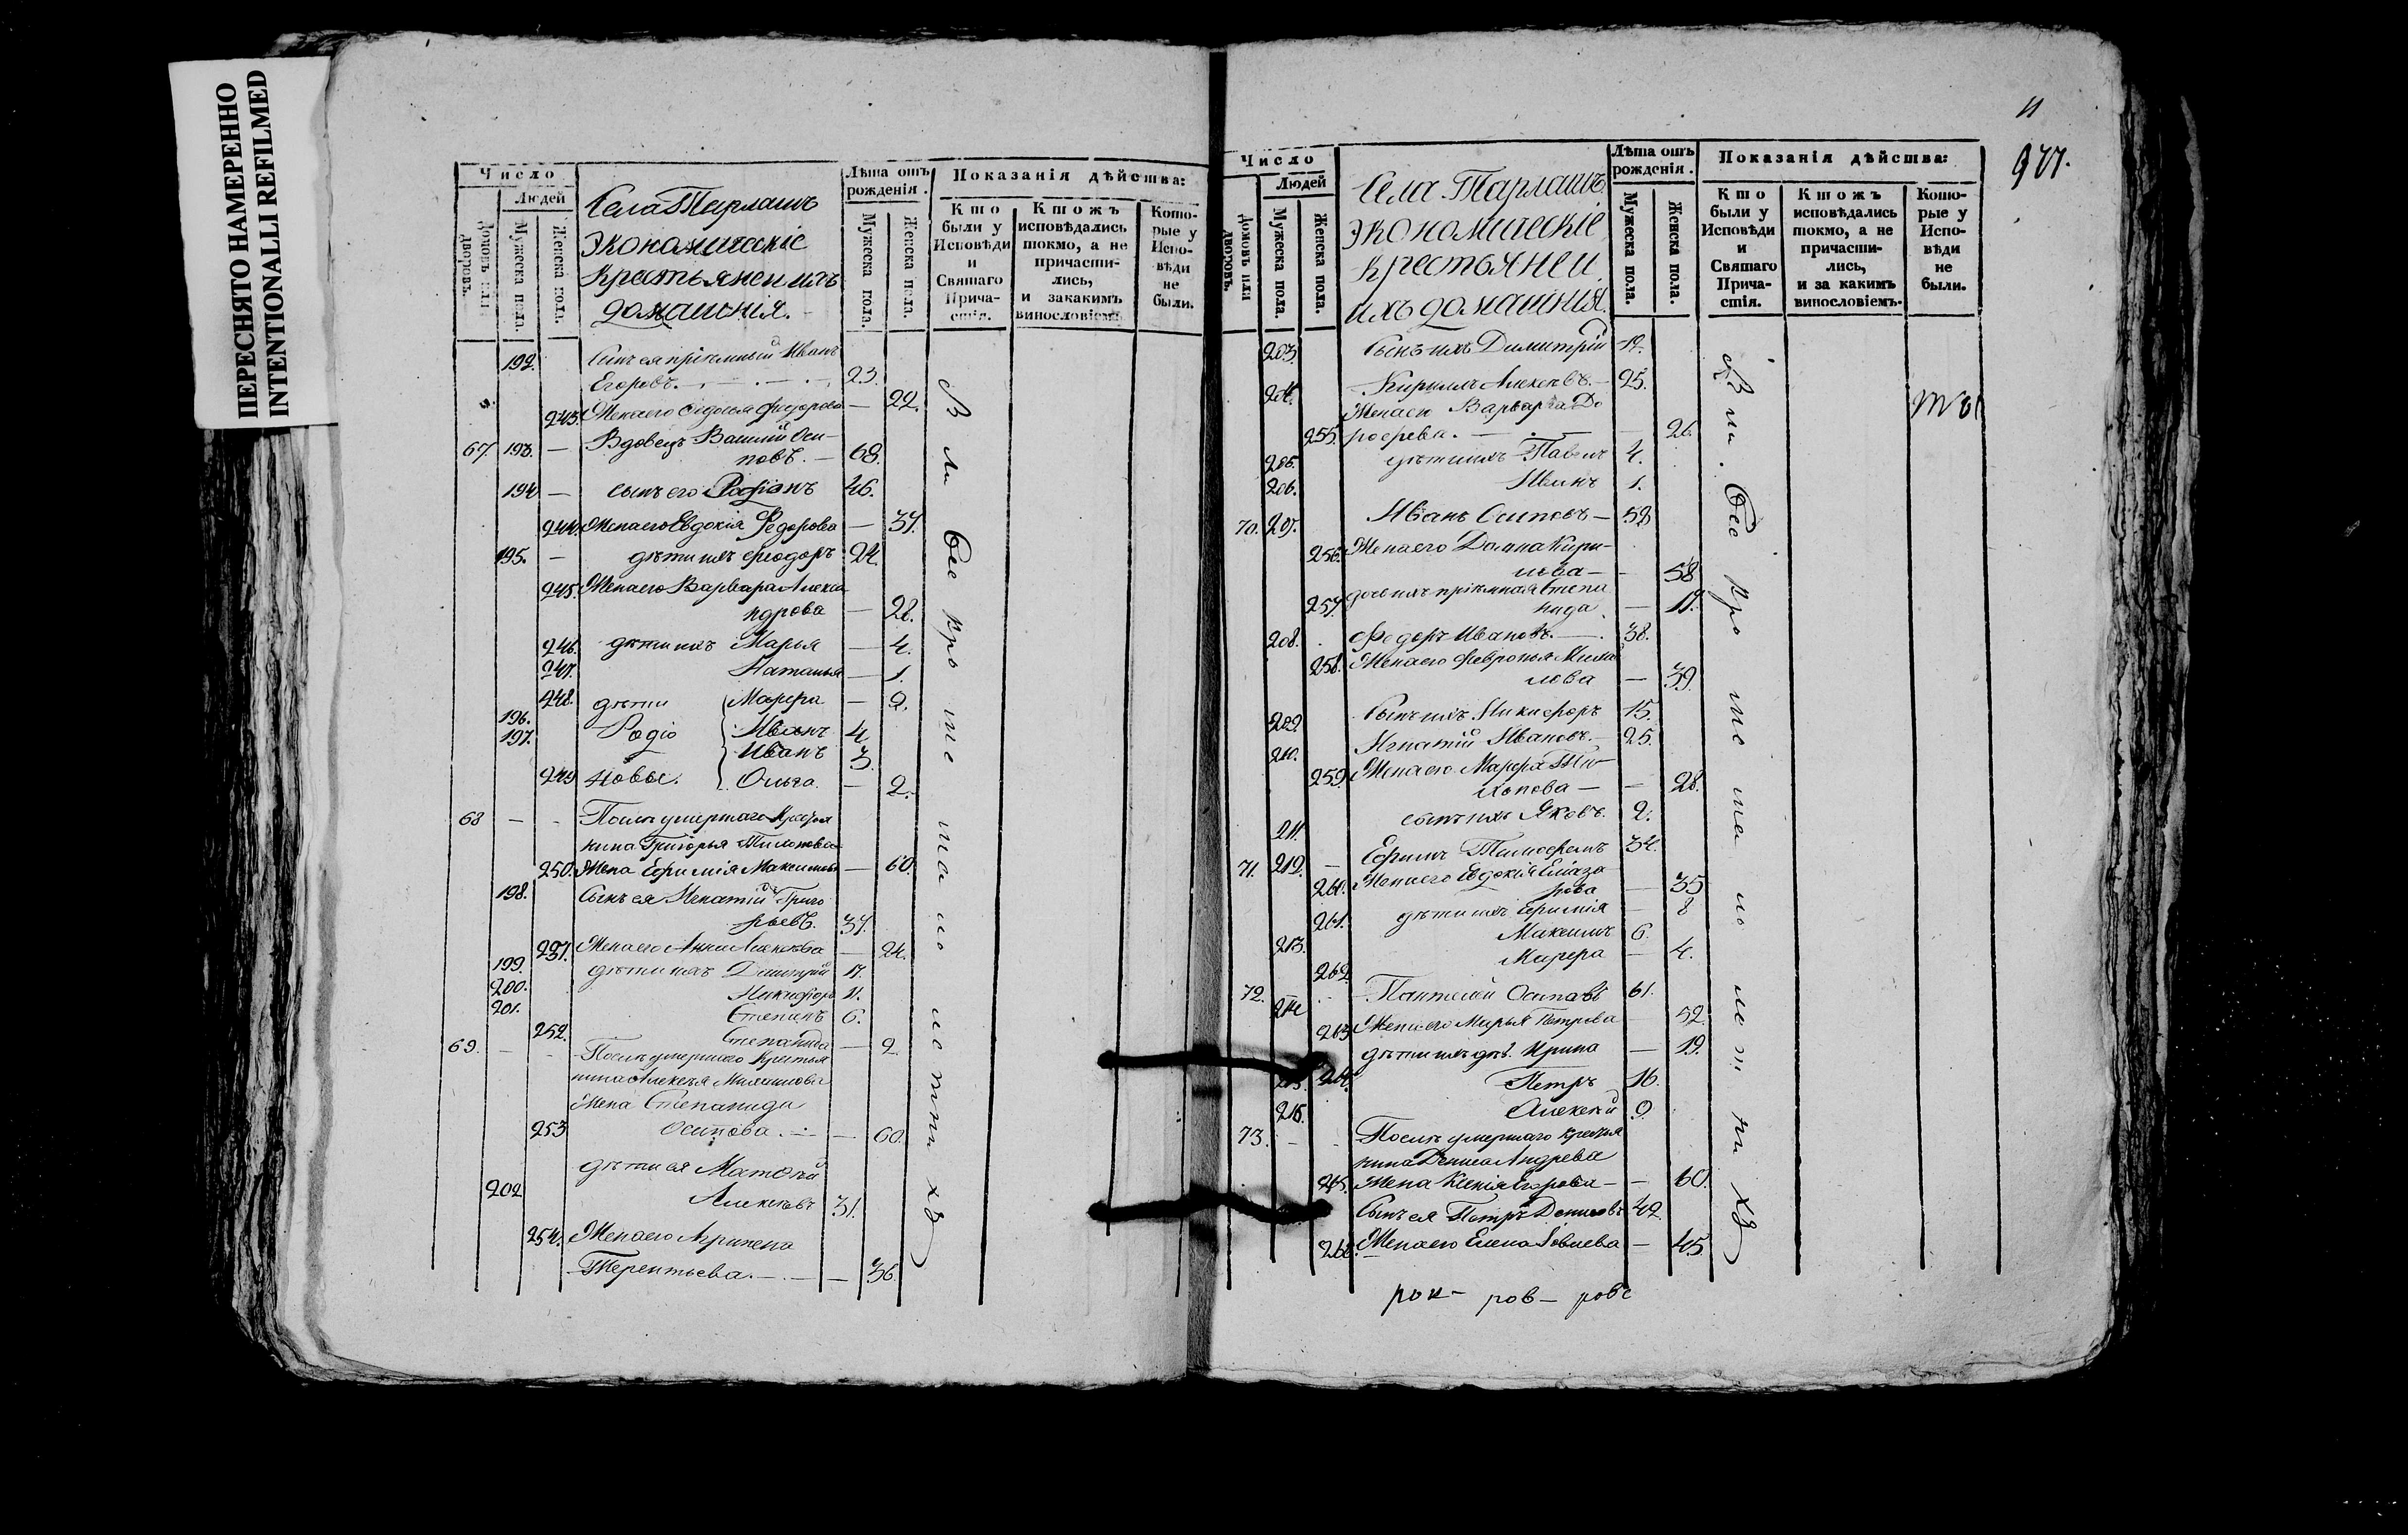 ПЕРЕСНЯТО НАМЕРЕННО
INTENTIONALLI REFILMED
Число
Людей
Домовъ или дворовъ.
Мужеска пола.
Женска пола.
Села Тарлашъ
экономическіе
крестьяне и ихъ
домашнія.
Лѣта отъ рожденія.
Мужеска пола.
Женска пола.
Показанія дѣйства:
Кто были у Исповѣди и Святаго Причастія.
Ктожъ исповѣдались токмо, а не причастились, и закакимъ винословіемъ
Которые у Исповѣди не были.
192. Сынъ ея пріемный Иванъ
Егоровъ. 23.
243. Жена его Федосья Федорова — 22.
67. 193. — Вдовецъ Василій Оси-
повъ. — 68.
194 — сынъ его Родіонъ 46.
244. Жена его Евдокія Федорова — 37.
195. — дѣти ихъ Феодоръ 24.
245. Жена его Варвара Алекса
ндрова — 22.
246. дѣти ихъ Марья — 4.
247. Наталья — 1.
248. дѣти Марфа — 2.
196. Родіо Иванъ 4
197. Иванъ 3.
249 новы. Ольга. — 2.
68 — - Послѣ умершаго крестья
нина Григорья Тихонова
250. Жена Ефимія Максимова — 60.
198. Сынъ ея Игнатій Григо
рьевъ. 37.
251. Жена его Анна Алексѣева — 24.
199. дѣти ихъ Димитрій 17.
200. Никифоръ 11.
201. Степанъ 6.
252. Степанида — 2.
69. — - Послѣ умершаго крестья
нина Алексѣя Михайлова
Жена Степанида
253 Осипова. — — 60.
дѣти ея Матвѣй
202 Алексѣевъ 31.
254. Жена его Агрипена
Терентьева. — — 36.
Вси Оные
11
977.
Число
Людей
Домовъ или дворовъ.
Мужеска пола.
Женска пола.
Села Тарлашъ
экономическіе
крестьяне и
ихъ домашнія.
Лѣта отъ рожденія.
Мужеска пола.
Женска пола.
Показанія дѣйства:
Кто были у Исповѣди и Святаго Причастія.
Ктожъ исповѣдались токмо, а не причастились, и за какимъ винословіемъ.
Которые у Исповѣди не были.
203. Сынъ ихъ Димитрій 12.
204. Кирилъ Алексѣевъ. — 25.
Жена его Варвара До
255. рофѣева. — — 26.
205. дѣти ихъ Павелъ 4.
206. Иванъ 1.
70. 207. Иванъ Осиповъ — 58
256. Жена его Домна Кири-
лова — — 58
257. дочь ихъ пріемная Степа
нида — 17.
208. Федоръ Ивановъ. — 38.
258. Жена его Февронья Михай
лова — 39.
209. Сынъ ихъ Никифоръ 15.
210. Игнатій Ивановъ. — 25.
259. Жена его Марфа Ти-
хонова — — 28.
211. сынъ ихъ Яковъ. 2.
71. 212. — Ефимъ Тимофеевъ 34.
260. Жена его Евдокія Елиаза
рова — 35
261. дѣти ихъ Ефимія — 8
213. Максимъ 6.
262 Марфа — 4.
72. 214 Пантелей Осиповъ 61.
263 Жена его Марья Петрова 52.
264. дѣти ихъ дѣв. Ирина — 19.
215. Петръ 16.
216. Алексѣй 9.
73. — - Послѣ умершаго крестья
нина Дениса Андреева
265. Жена Ксенія Егорова — — 60.
Сынъ ея Петръ Денисовъ 42.
266. Жена его Елена Іовлева — 45
рок — ров — рове